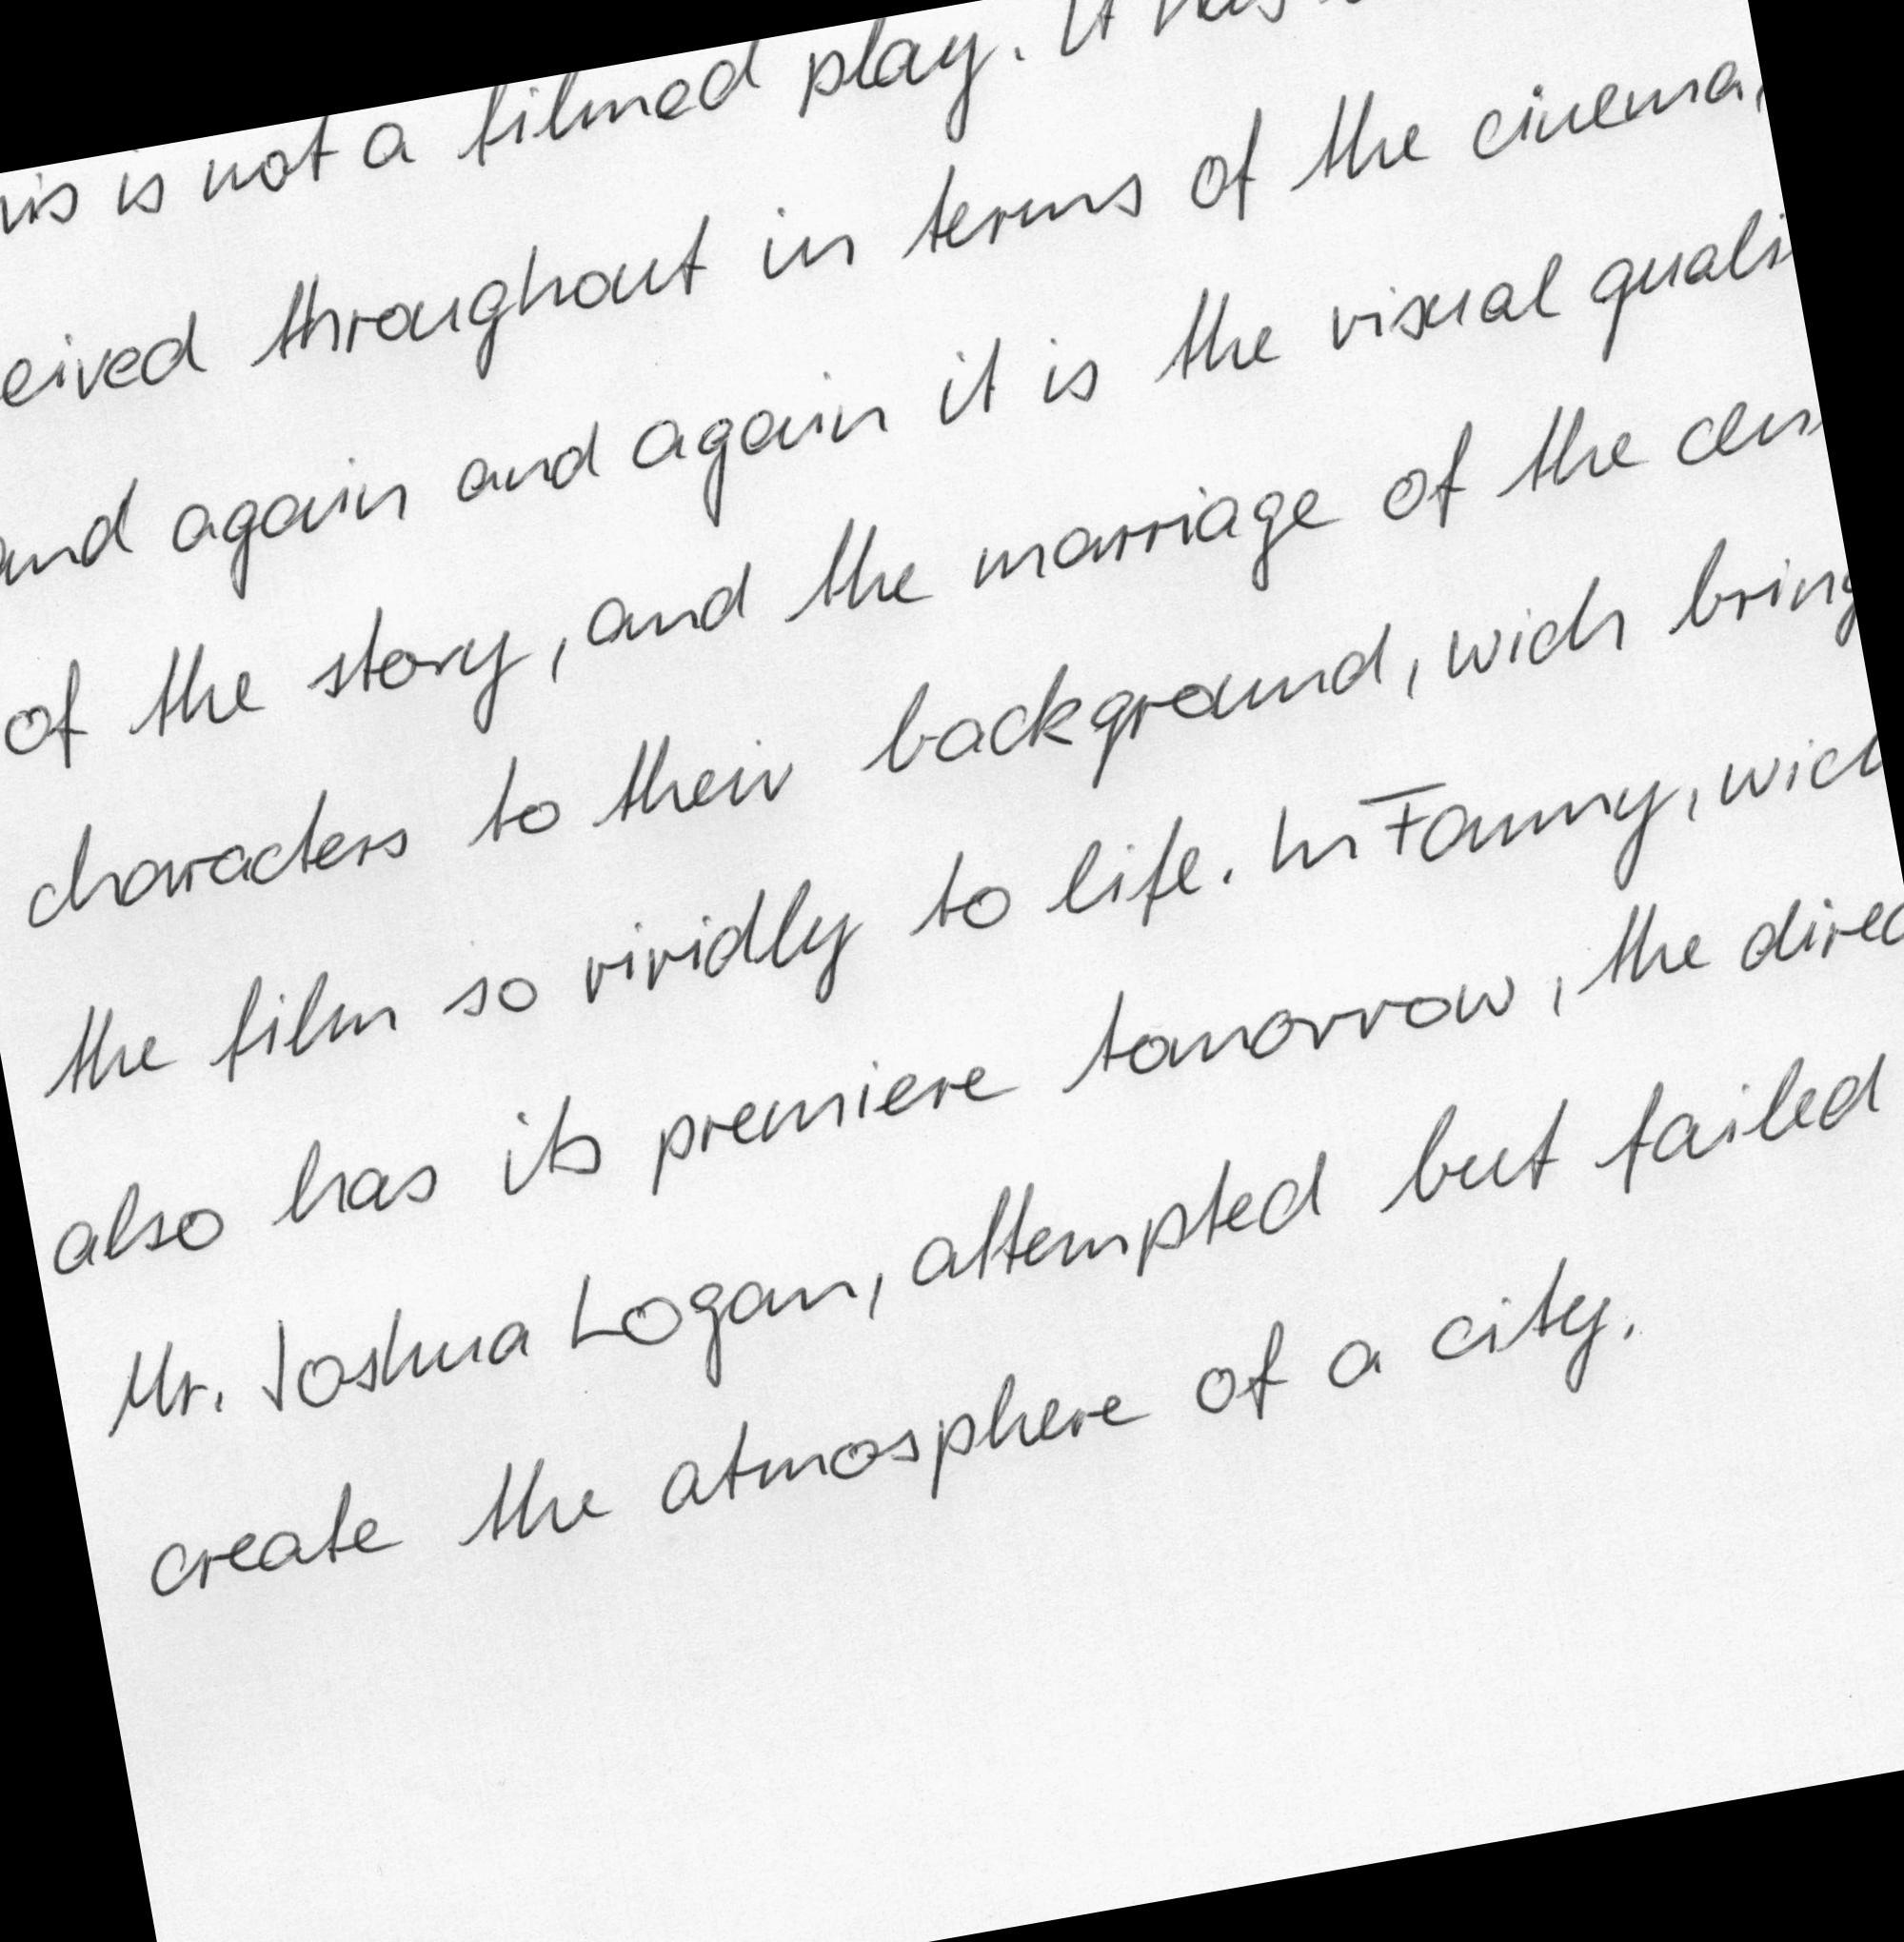 is not a filmed play. It has
eived throughout in terms of the cinema,
and again and again it is the visual quali
of the story, and the marriage of the cen
characters to their background, wich bring
the film so vividly to life. In Fanny, wich
also has its premiere tomorrow, the direc
Mr. Joshua Logan, attempted but failed
create the atmosphere of a city.